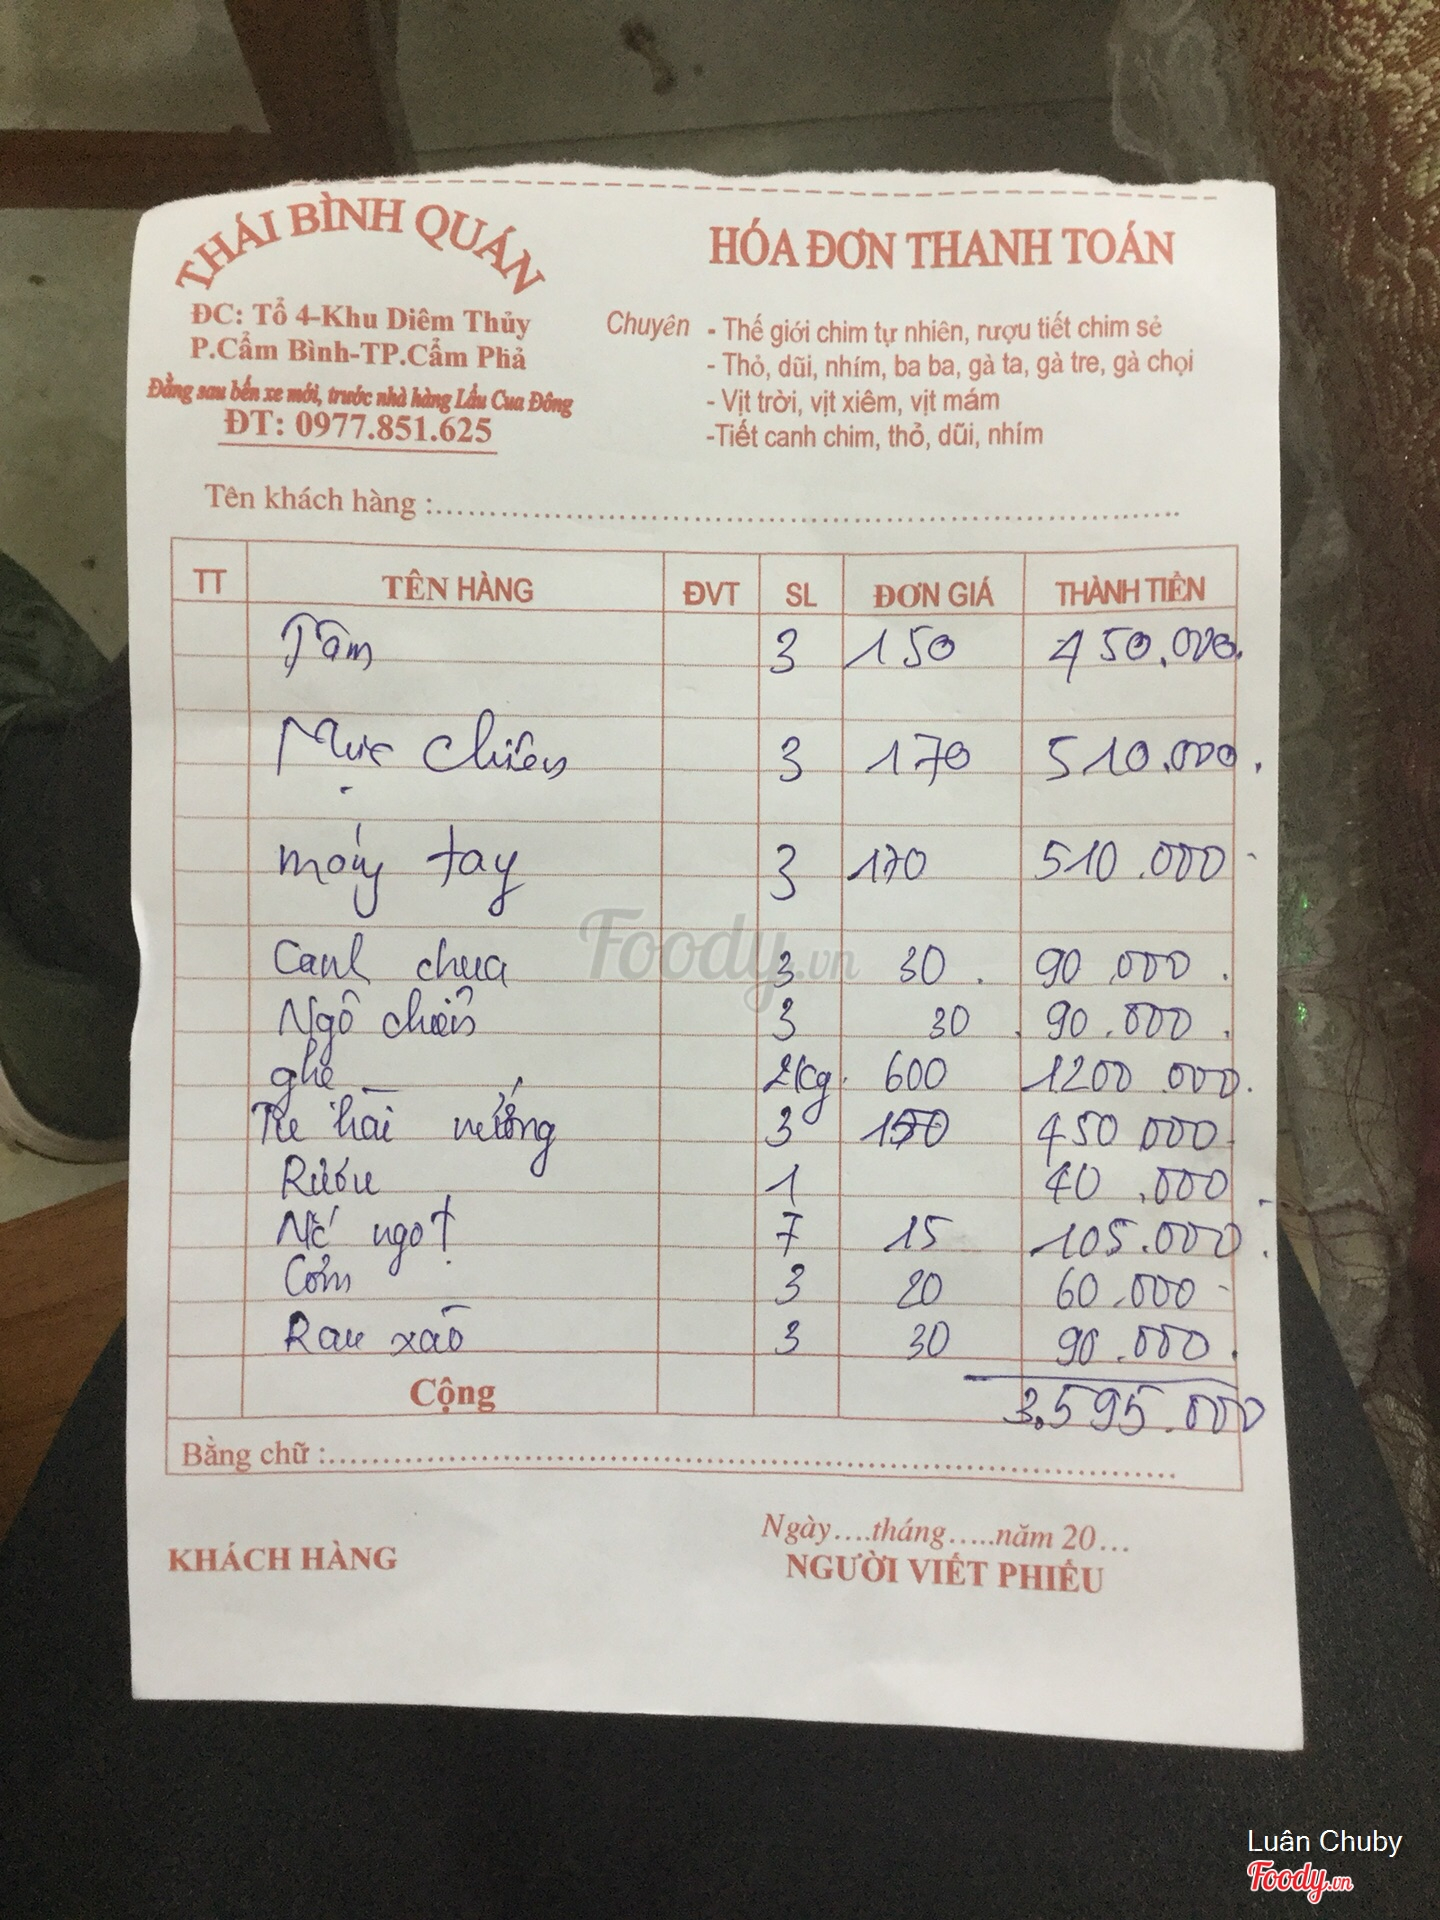 THÁI BÌNH QUÁN
ĐC: Tổ 4-Khu Diêm Thủy
P.Cẩm Bình-TP.Cẩm Phả
Đằng sau bến xe mới, trước nhà hàng Lẩu Cua Đồng
ĐT: 0977.851.625
HÓA ĐƠN THANH TOÁN
Chuyên - Thế giới chim tự nhiên, rượu tiết chim sẻ
- Thỏ, dũi, nhím, ba ba, gà ta, gà tre, gà chọi
- Vịt trời, vịt xiêm, vịt mám
-Tiết canh chim, thỏ, dũi, nhím
Tên khách hàng :
TT TÊN HÀNG ĐVT SL ĐƠN GIÁ THÀNH TIỀN
3 150 450.000
Mực chiên 3 170 510.000
móng tay 3 170 510.000
Canh chua 3 30 90.000
Ngô chiên 3 30 90.000
ghẹ 2kg 600 1200.000
hài nướng 3 150 450 000
Rượu 1 40.000
Nc ngọt 7 15 105.000
Cơm 3 20 60.000
Rau xào 3 30 90.000
Cộng 3.595.000
Bằng chữ :
Ngày....tháng.....năm 20...
KHÁCH HÀNG NGƯỜI VIẾT PHIẾU
Foody.vn
Luân Chuby
Foody.vn